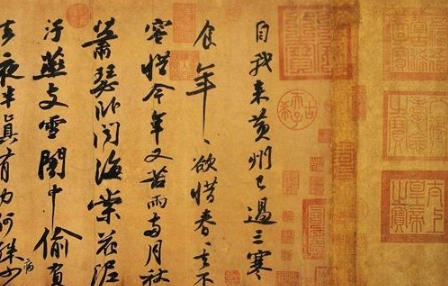 自我來黃州已過三寒
食年〻欲惜春〻去不
容惜今年又苦雨兩月秋
蕭瑟臥聞海棠花泥
汙燕支雪闇中偷負
去夜半真有力何殊少
病